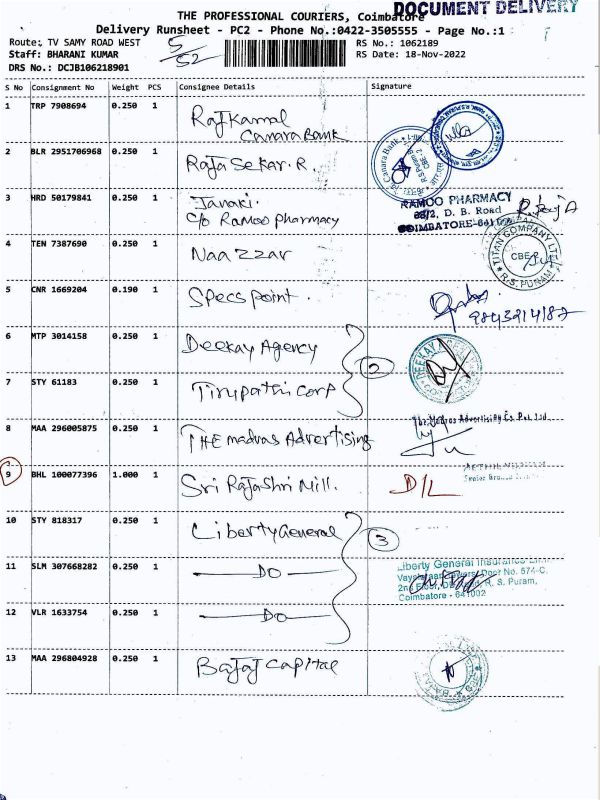 DOCUMENT DELIVERY
THE PROFESSIONAL COURIERS, Coimbatore
Delivery Runsheet - PC2 - Phone No.:0422-3505555 - Page No.:1
Route: TV SAMY ROAD WEST
5/52
RS No.: 1062189
Staff: BHARANI KUMAR
RS Date: 18-Nov-2022
DRS No.: DCJB106218901
S No Consignment No Weight PCS Consignee Details Signature
1 TRP 7908694 0.250 1 Rajkamal
Canara Bank
2 BLR 2951706968 0.250 1 Raja Sekar. R.
Canara Bank
3 HRD 50179841 0.250 1 Janaki.
C/o Ramoo Pharmacy
RAMOO PHARMACY
D. B. Road
COIMBATORE-641
4 TEN 7387690 0.250 1 Naazzar
TITAN COMPANY LTD
CBE
R.S. PURAM
5 CNR 1669204 0.190 1 Specs Point.
6 MTP 3014158 0.250 1 Deekay Agency
2
DEEKAY AGENCY
7 STY 61183 0.250 1 Tirupathi Corp
8 MAA 296005875 0.250 1 THE madras Advertising
The Madras Advertising Co. Pvt. Ltd.
9 BHL 100077396 1.000 1 Sri Rajashri Mill. D/L
10 STY 818317 0.250 1 Liberty General
3
11 SLM 307668282 0.250 1 — DO —
Liberty General Insurance
Door No. 574-C,
R. S. Puram,
Coimbatore - 641002
12 VLR 1633754 0.250 1 — DO —
13 MAA 296804928 0.250 1 Bajaj Capital